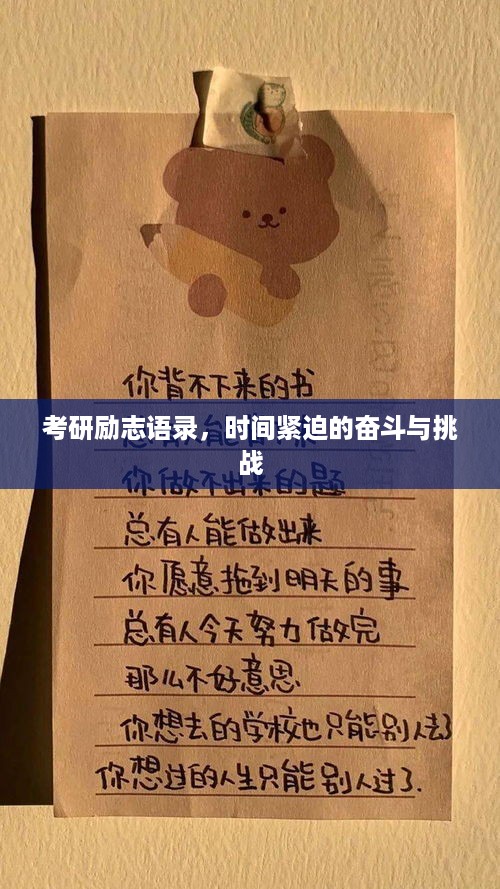 你背不下来的书
考研励志语录，时间紧迫的奋斗与挑
战
你做不出来的题
总有人能做出来
你愿意拖到明天的事
总有人今天努力做完
那么不好意思
你想去的学校也只能别人去了
你想过的人生只能别人过了.